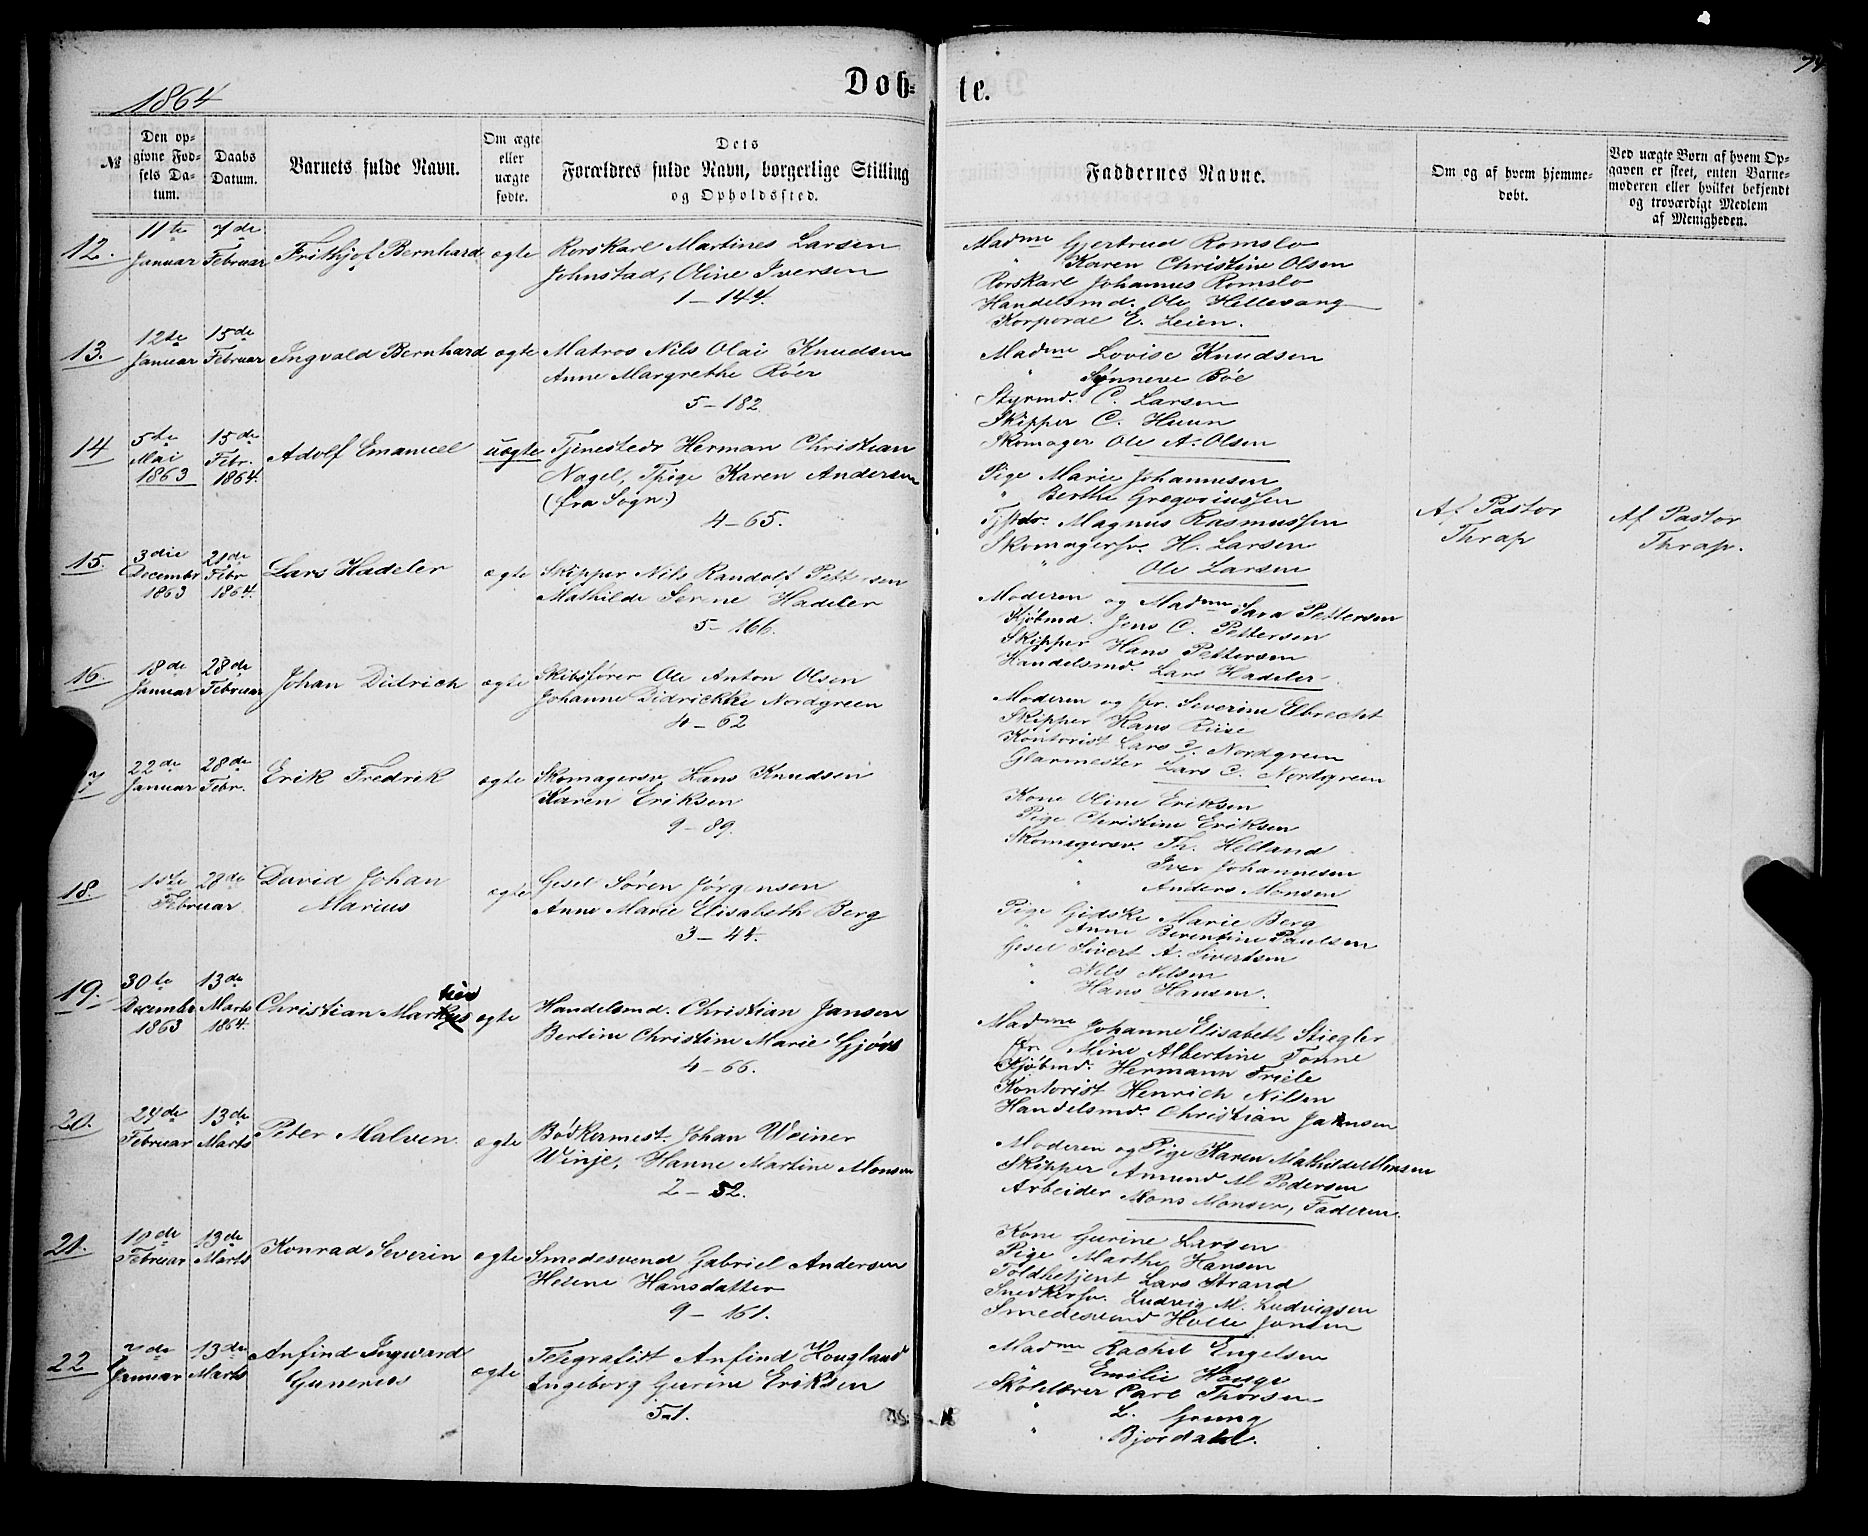 1864
Døb-
te.
74
№
Den op-
givne Fød-
sels Da-
tum.
Daabs
Datum.
Barnets fulde Navn.
Om ægte
eller
uægte
fødte.
Dets
Forældres fulde Navn, borgerlige Stilling
og Opholdssted.
Faddernes Navne.
Om og af hvem hjemme-
døbt.
Ved uægte Børn af hvem Op-
gaven er skeet, enten Barne-
moderen eller hvilket bekjendt
og troværdigt Medlem
af Menigheden.
12.
11te
Januar
7de
Februar
Frithjof Bernhard
ægte
Rorskarl Martines Larsen
Johnstad, Oline Iversen
1-144.
Madme Gjertrud Romslo
" Karen Christine Olsen
Rorskarl Johannes Romslo
Handelsmd. Ole Hellevang
Korporal E. Leien.
13.
12te
Januar
15de
Februar
Ingvald Bernhard
ægte
Matros Nils Olai Knudsen
Anne Margrethe Röer
5-182
Madme Lovise Knudsen
" Sönneve Böe
Styrmd. C. Larsen
Skipper C. Huun
Skomager Ole A. Olsen
14
5te
Mai
1863
15de
Febr.
1864.
Adolf Emanuel
uægte
Tjenestedr Herman Christian
Nagel, Tpige Karen Andersen
(fra Sogn.)
4-65.
Pige Marie Johannesen
" Berthe Gregoriussen
Tjstdr. Magnus Rasmussen
Skomagersv. H. Larsen
" Ole Larsen
Af Pastor
Thrap
Af Pastor
Thrap.
15.
3die
December
1863
21de
Febr
1864.
Lars Hadeler
ægte
Skipper Nils Randolf Pettersen
Mathilde Serine Hadeler
5-166.
Moderen og Madme Sara Pettersen
Kjöbmd. Jens C. Pettersen
Skipper Hans Pettersen
Handelsmd. Lars Hadeler
16.
18de
Januar
28de
Februar
Johan Didrich
ægte
Skibsfører Ole Anton Olsen
Johanne Didrickke Nordgreen
4-62
Moderen og Jfr. Severine Elbrecht
Skipper Hans Riise
Kontorist Lars J. Nordgreen
Glarmester Lars C. Nordgreen
7
22de
Januar
28de
Febr.
Erik Fredrik
ægte
Skomagersv. Hans Knudsen
Karen Eriksen
9-89.
Kone Oline Eriksen
Pige Christine Eriksen
Skomagersv. Th. Helland
" Iver Johannesen
" Anders Monsen
18.
1ste
Februar
28de
David Johan
Marius
ægte
Gesel Søren Jørgensen
Anne Marie Elisabeth Berg
3-44.
Pige Gidske Marie Berg
" Anne Berentine Paulsen
Gesel Sivert A. Sivertsen
" Nils Nilsen
" Hans Hansen.
19.
30te
December
1863
13de
Marts
1864.
Christian Markus
ægte
Handelsmd. Christian Jansen
Bertine Christine Marie Gjörs
4-66.
Madme Johanne Elisabeth Stiegler
Jfr. Mine Albertine Tonne
Kjöbmd. Hermann Friele
Kontorist Henrich Nilsen
Handelsmd. Christian Jansen
20.
24de
Februar
13de
Marts
Peter Malven.
ægte
Bödkermest. Johan Weiner
Winje, Hanne Martine Monsen
2-52.
Moderen og Pige Karen Mathilde Monsen
Skipper Amund M. Pedersen
Arbeider Mons Monsen, Faderen.
21.
10de
Februar
13de
Marts
Konrad Severin
ægte
Smedesvend Gabriel Andersen
Helene Hansdatter
9-161.
Kone Gurine Larsen
Pige Marthe Hansen
Toldbetjent Lars Strand
Snedkersv. Ludvig M. Ludvigsen
Smedesvend Halle Jonsen
22
Januar
13de
Marts
Anfind Ingward
Gunerius
ægte
Telegrafist Anfind Hougland
Ingeborg Gurine Eriksen
5-1.
Madme Rachel Engelsen
" Emilie Hauge
Skolelærer Carl Thorsen
" L. Grung
" Bjordahl.